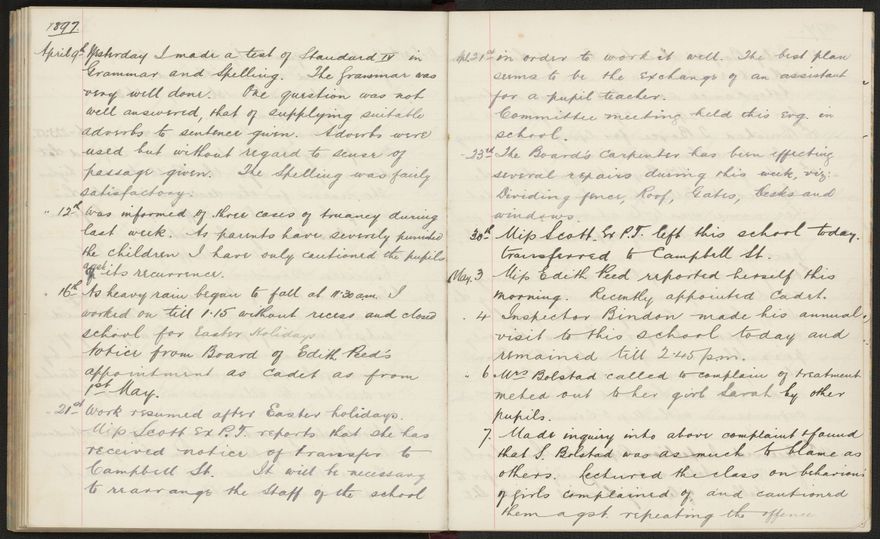 1897
April 9th Yesterday I made a test of Standard IV in
Grammar and Spelling. The Grammar was
very well done. One question was not
well answered, that of supplying suitable
adverbs to sentence given. Adverbs were
used but without regard to sense of
passage given. The Spelling was fairly
satisfactory.
" 12th Was informed of three cases of truancy during
last week. As parents have severely punished
the children I have only cautioned the pupils
agst its recurrence.
" 16th As heavy rain began to fall at 11.30 am. I
worked on till 1.15 without recess and closed
school for Easter Holidays
Notice from Board of Edith Peed's
appointment as Cadet as from
1st May.
" 21st Work resumed after Easter holidays.
Miss Scott Ex P.T. reports that she has
received notice of transfer to
Campbell St. It will be necessary
to rearrange the Staff of the school
Apl. 21st in order to work it well. The best plan
seems to be the exchange of an assistant
for a pupil teacher.
Committee meeting held this Evg. in
school.
" 23rd The Board's Carpenter has been effecting
several repairs during this week, viz:
Dividing fence, Roof, Gates, Desks and
windows.
30th Miss Scott Ex P.T. left this school today.
transferred to Campbell St.
May. 3 Miss Edith Peed reported herself this
morning. Recently appointed Cadet.
" 4 Inspector Bindon made his annual
visit to this school today and
remained till 2.45 pm.
" 6 Mrs Bolstad called to complain of treatment
meted out to her girl Sarah by other
pupils.
7. Made inquiry into above complaint & found
that S. Bolstad was as much to blame as
others. Lectured the class on behaviour
of girls complained of, and cautioned
them agst repeating the offence